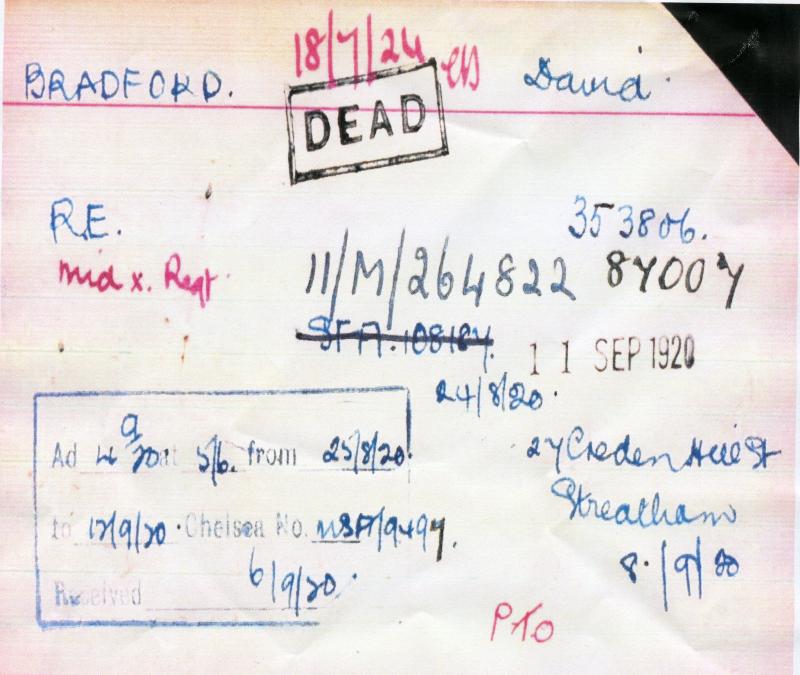 BRADFORD. 18/7/24 David
DEAD
R.E. 353806.
Mid x. Regt. 11/M/264822 87007
11 SEP 1920
24/8/20.
Ad at 5/6. from 25/8/20.
27 Creden Hill St
to 12/9/20. Chelsea No.
Streatham
Received 6/9/20.
8./9/20
PTO